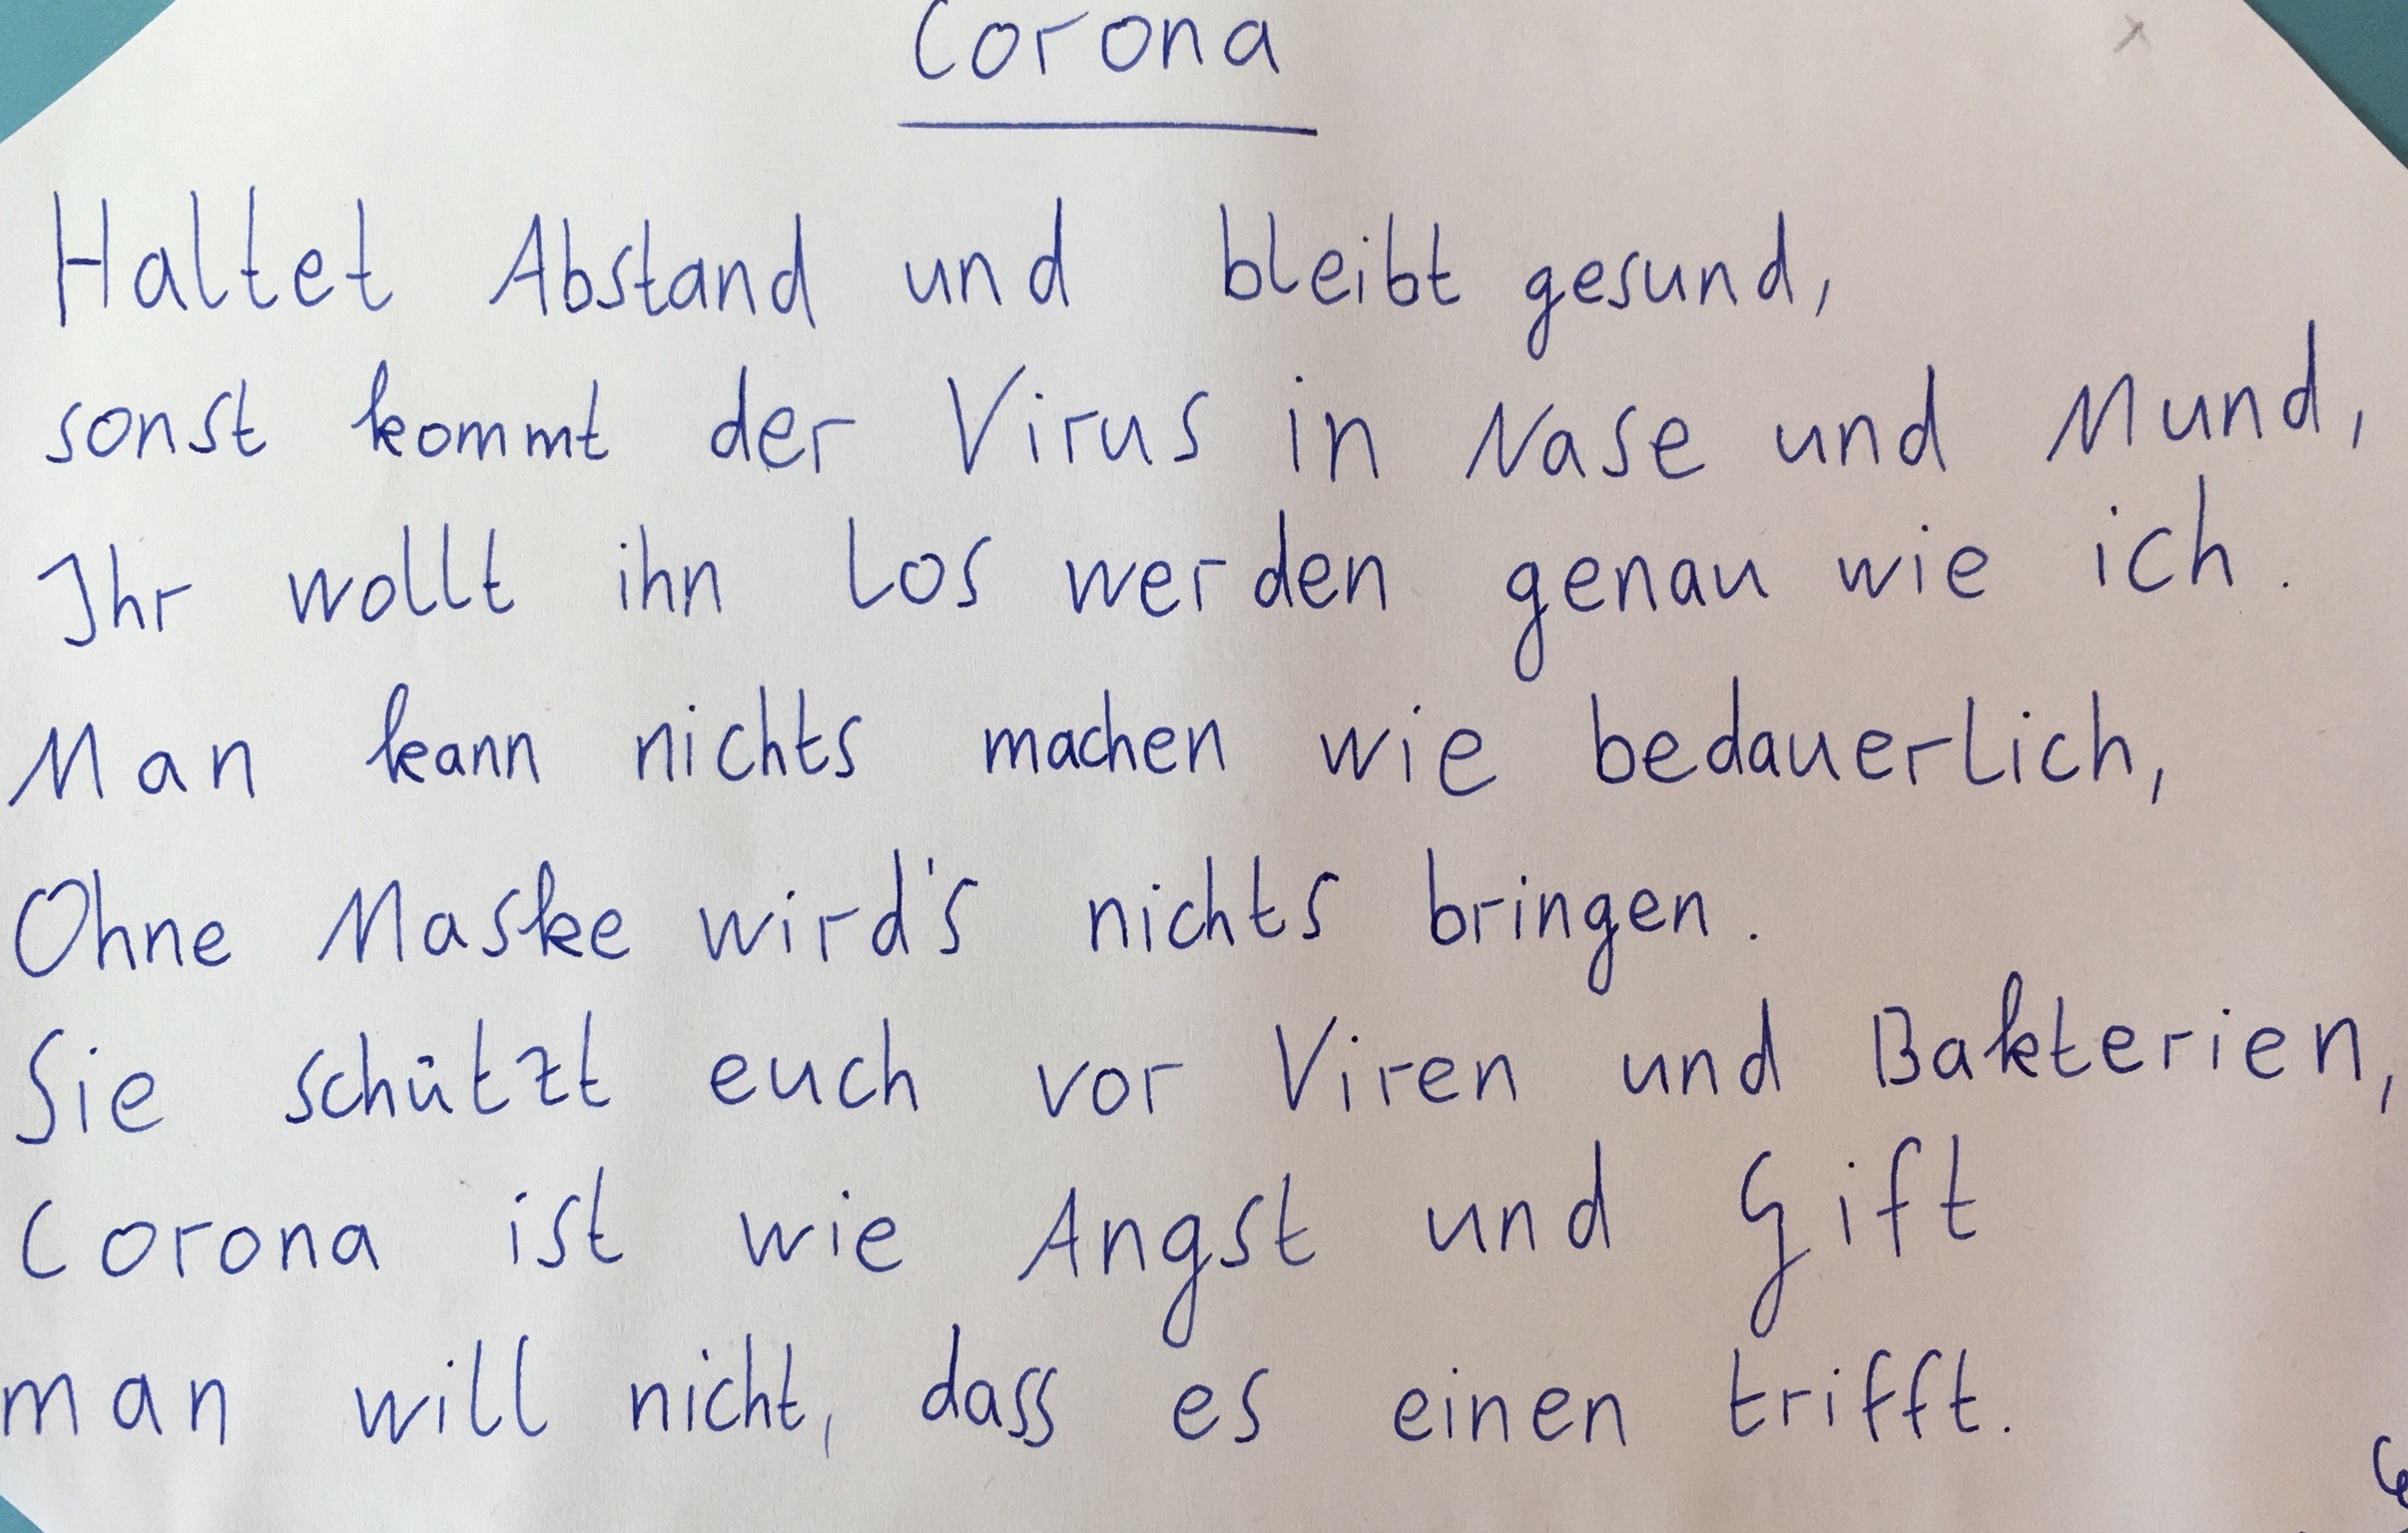 Corona
Haltet Abstand und bleibt gesund,
sonst kommt der Virus in Nase und Mund,
Ihr wollt ihn los werden genau wie ich.
Man kann nichts machen wie bedauerlich,
Ohne Maske wird's nichts bringen.
Sie schützt euch vor Viren und Bakterien,
Corona ist wie Angst und Gift
man will nicht, dass es einen trifft.